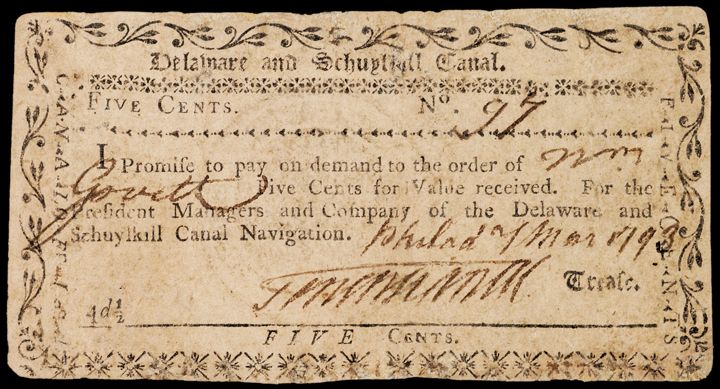 Delaware and Schuylkill Canal.
FIVE CENTS. No. 97
I Promise to pay on demand to the order of Wm
Govett Five Cents for Value received. For the
President Managers and Company of the Delaware and
Schuylkill Canal Navigation. Philad Mar 1793
Treasr.
4d½
FIVE CENTS.
CANAL
FIVE CENTS